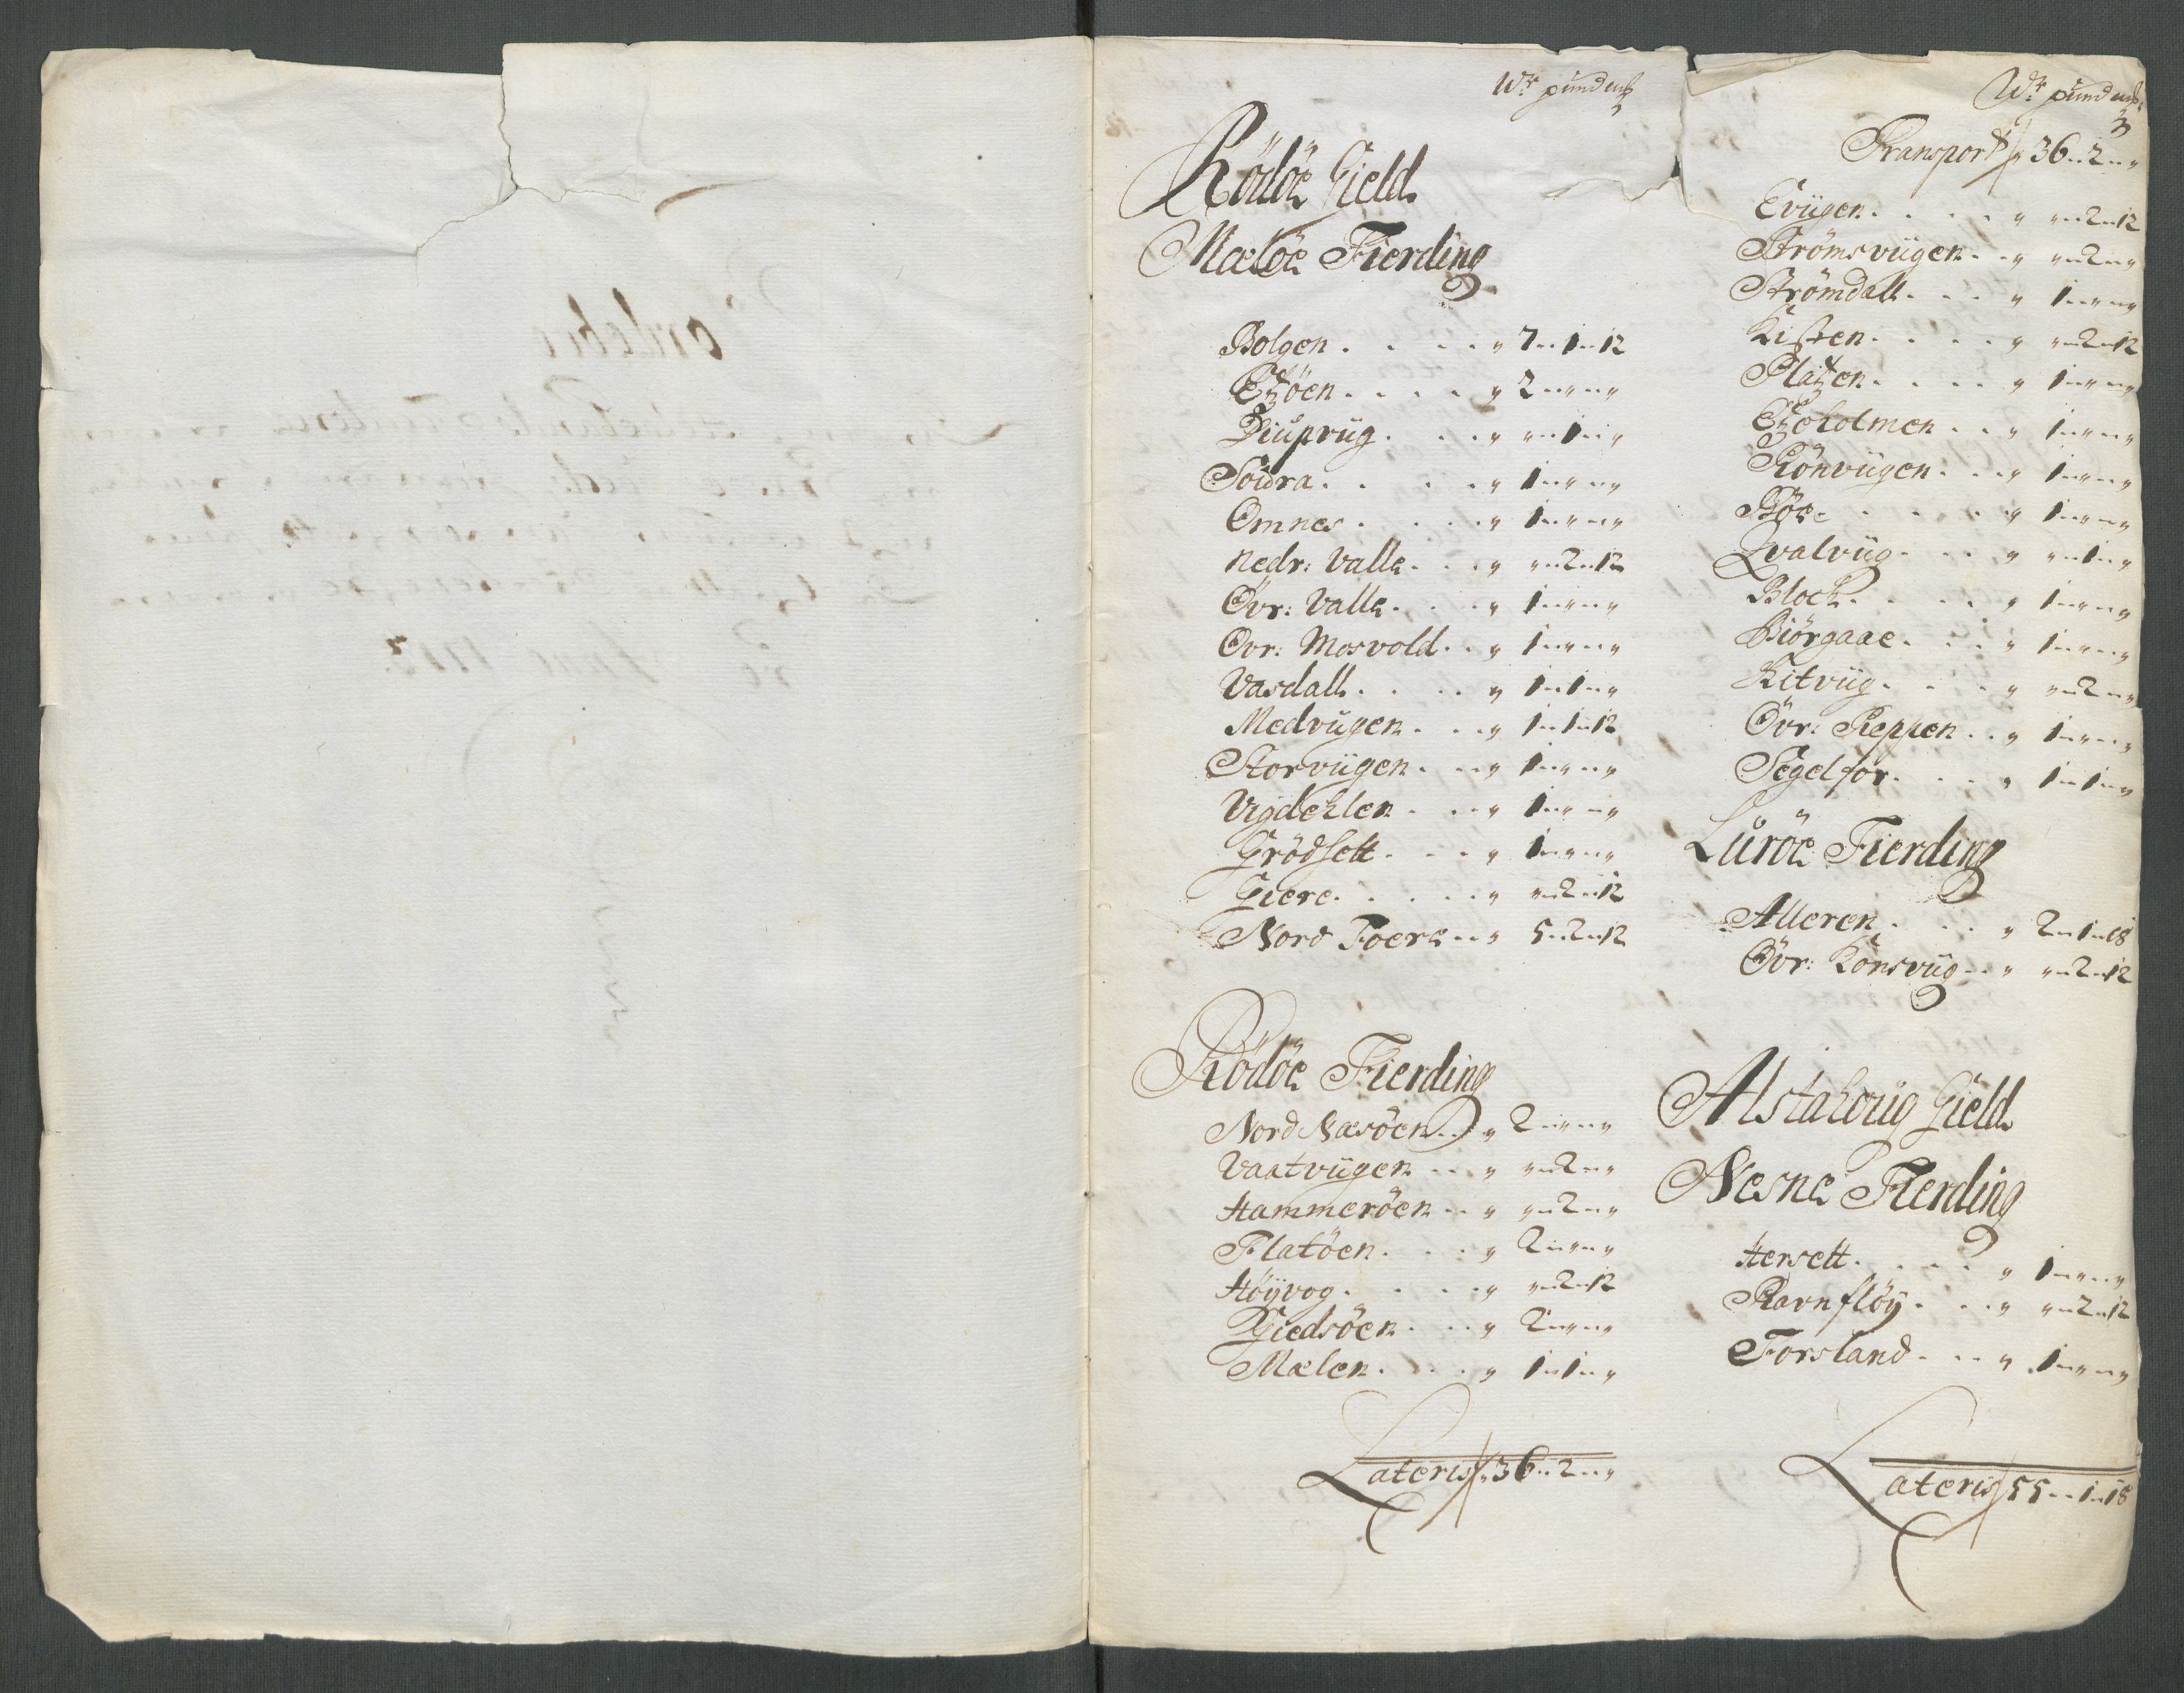 Wr pund mk
Rödöe Gield
Meløe Fierding
Bolgen . . . . „ 7 „ 1 „ 12
Etzöen . . . . „ 2 „ „ „ „
Diuprüg . . . „ „ „ 1 „ „
Soidra . . . . „ 1 „ „ „ „
Omnes . . . . „ 1 „ „ „ „
Nedr: Valle . . . „ „ „ 2 „ 12
Øvr: Valle . . . „ 1 „ „ „ „
Ovr: Mosvold . . „ 1 „ „ „ „
Vasdall . . . . „ 1 „ 1 „ „
Medvügen . . . „ 1 „ 1 „ 12
Storvügen . . . „ 1 „ „ „ „
Vigdehlen . . . „ 1 „ „ „ „
Grödsett . . . „ 1 „ „ „ „
Giere . . . . . „ „ „ 2 „ 12
Nord Foere . . „ 5 „ 2 „ 12
Rödöe Fierding
Nord Næsöen . . „ 2 „ „ „ „
Vaatvügen . . . „ „ „ 2 „ „
Hammeröen . . „ „ „ 2 „ „
Flatöen . . . „ 2 „ „ „ „
Höyvog . . . . „ „ „ 2 „ 12
Giedsöen . . . „ 2 „ „ „ „
Mælen . . . . „ 1 „ 1 „ „
Lateris „ 36 „ 2 „ „
Wr pund mk
3
Transport „ 36 „ 2 „ „
Evügen . . . . „ „ „ 2 „ 12
Strömsvügen . . „ „ „ 2 „ „
Strömdall . . . „ 1 „ „ „ „
Kisten . . . . „ „ „ 2 „ 12
Platzen . . . . „ 1 „ „ „ „
Etzoholmen . . „ 1 „ „ „ „
Rönvügen . . . „ 1 „ „ „ „
Böe . . . . . „ 1 „ „ „ „
Qvalvüg . . . „ „ „ 1 „ „
Block . . . . „ 1 „ „ „ „
Biörgaae . . . „ 1 „ „ „ „
Kitvüg . . . . „ „ „ 2 „ „
Övr: Reppen . . „ 1 „ „ „ „
Segelfor . . . „ 1 „ 1 „ „
Luröe Fierding
Alleren . . . . „ 2 „ 1 „ 18
Övr: Konsvüg . . „ „ „ 2 „ 12
Alstahoug Gield
Nesne Fierding
Hersett . . . . „ 1 „ „ „ „
Ravnflöy . . . „ „ „ 2 „ 12
Forsland . . . „ 1 „ „ „ „
Lateris 55 „ 1 „ 18